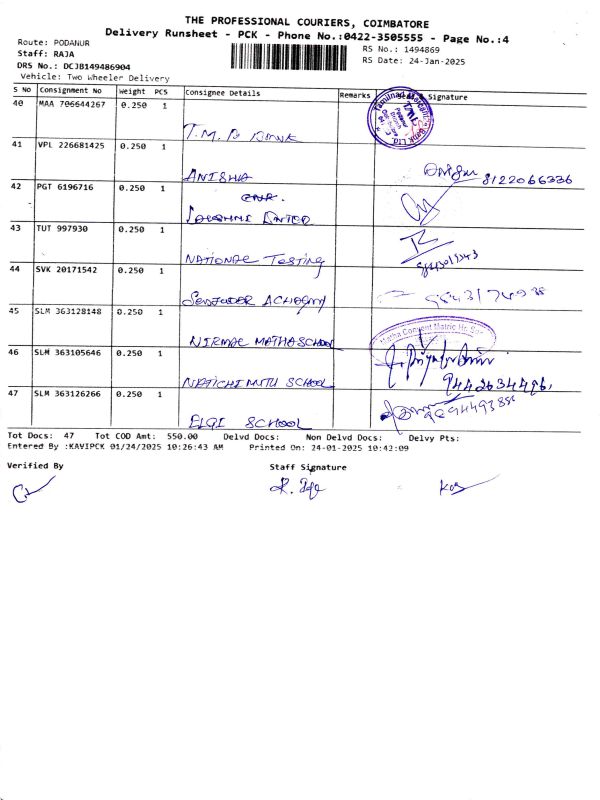 THE PROFESSIONAL COURIERS, COIMBATORE
Delivery Runsheet - PCK - Phone No.:0422-3505555 - Page No.:4
Route: PODANUR
RS No.: 1494869
Staff: RAJA
RS Date: 24-Jan-2025
DRS No.: DCJB149486904
Vehicle: Two Wheeler Delivery
S No Consignment No Weight PCS Consignee Details Remarks Signature
40 MAA 706644267 0.250 1
T.M.B Bank
41 VPL 226681425 0.250 1
ANISHA
8122066336
42 PGT 6196716 0.250 1
43 TUT 997930 0.250 1
NATIONAL TESTING
44 SVK 20171542 0.250 1
45 SLM 363128148 0.250 1
NIRMAL MATHA SCHOOL
Matha Convent Matric Hr. Sec
46 SLM 363105646 0.250 1
SCHOOL
9442634496
47 SLM 363126266 0.250 1
ELGI SCHOOL
Tot Docs: 47 Tot COD Amt: 550.00 Delvd Docs: Non Delvd Docs: Delvy Pts:
Entered By :KAVIPCK 01/24/2025 10:26:43 AM Printed On: 24-01-2025 10:42:09
Verified By Staff Signature